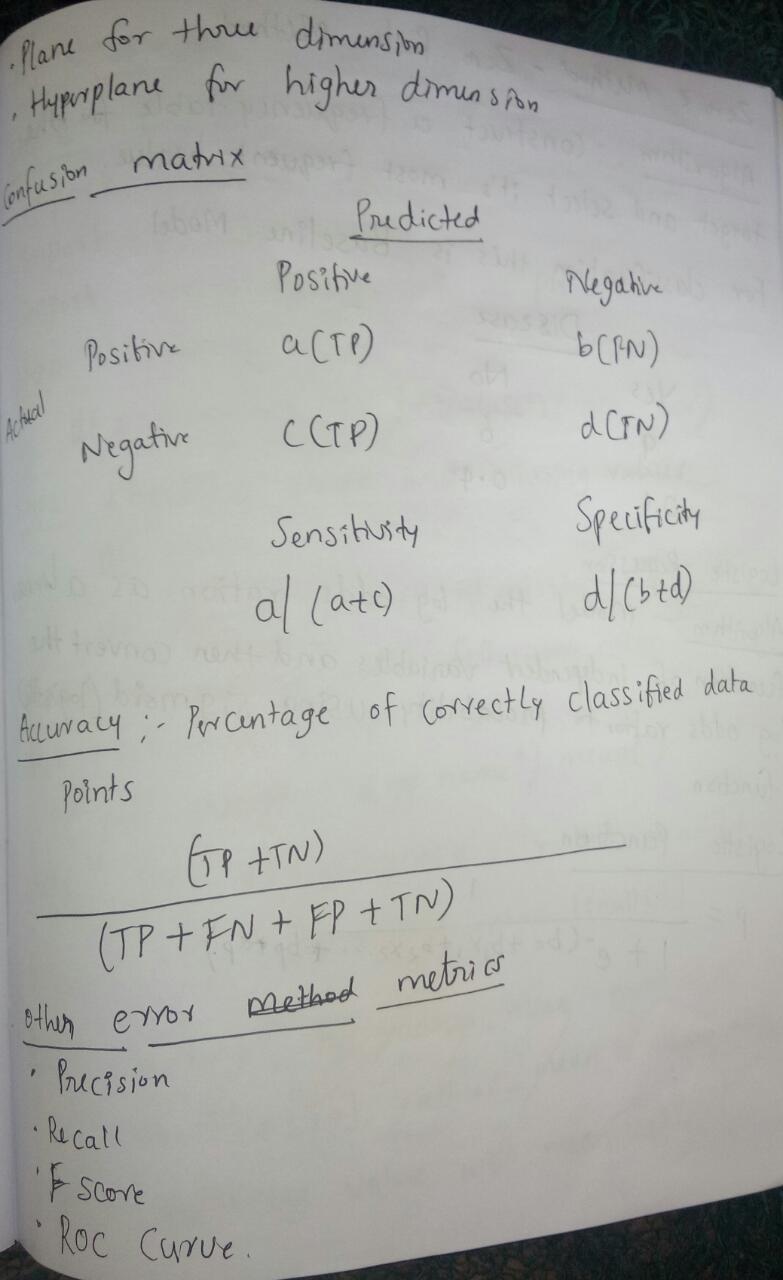 . Plane for three dimension
. Hyperplane for higher dimension
Confusion matrix
Predicted
Positive Negative
Positive a(TP) b(FN)
Actual
Negative c(TP) d(TN)
Sensitivity Specificity
a/(a+c) d/(b+d)
Accuracy :- Percentage of correctly classified data
Points
(TP + TN)
(TP + FN + FP + TN)
Other error Method metrics
. Precision
. Recall
. F score
. ROC Curve.